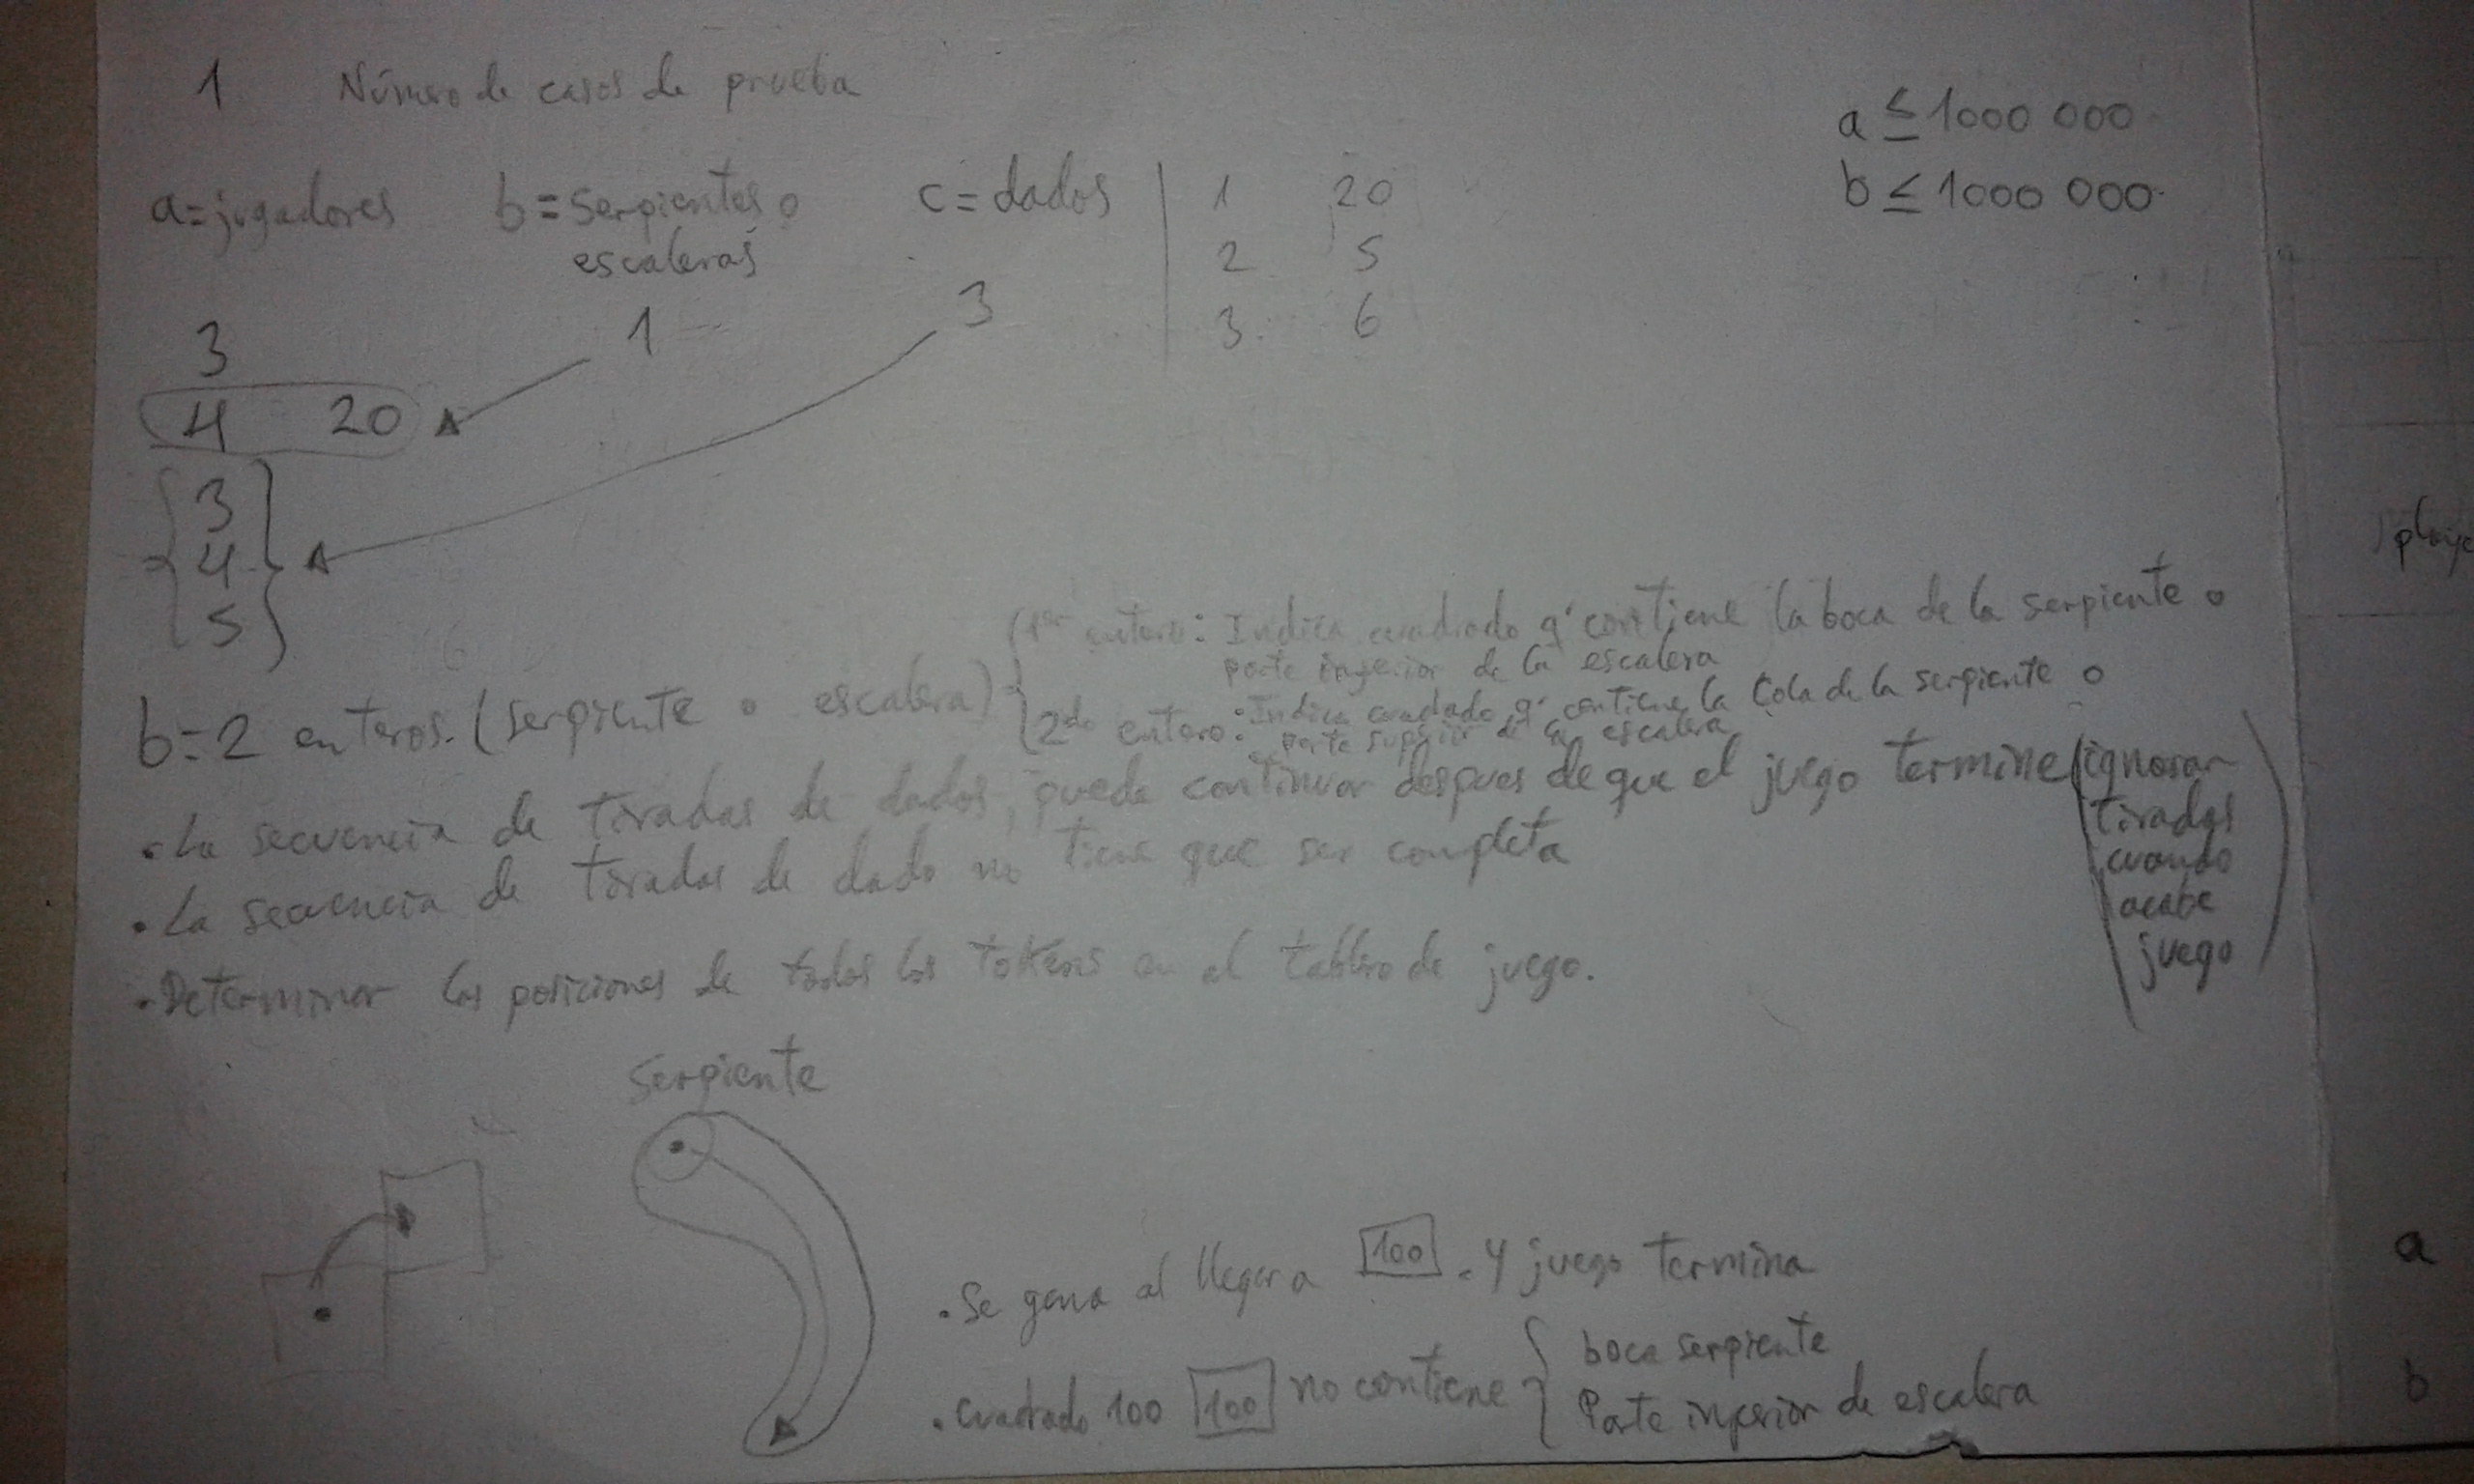 1 Número de casos de prueba
a ≤ 1000 000
b ≤ 1000 000
a=jugadores b=serpientes o c=dados 1 20
escaleras 2 5
3 1 3 3. 6
4 20
3
4
5
playe
1er entero: Indica cuadrado q' contiene la boca de la serpiente o
parte inferior de la escalera
b=2 enteros. (serpiente o escalera)
2do entero: Indica cuadrado q' contiene la Cola de la serpiente o
parte superior de la escalera
• La secuencia de tiradas de dados, puede continuar despues de que el juego termine (ignorar
tiradas
cuando
acabe
juego)
• La secuencia de tiradas de dado no tiene que ser completa
• Determinar las posiciones de todos los tokens en el tablero de juego.
serpiente
• Se gana al llegar a 100 . y juego termina
• Cuadrado 100 100 no contiene
boca serpiente
Parte inferior de escalera
a
b